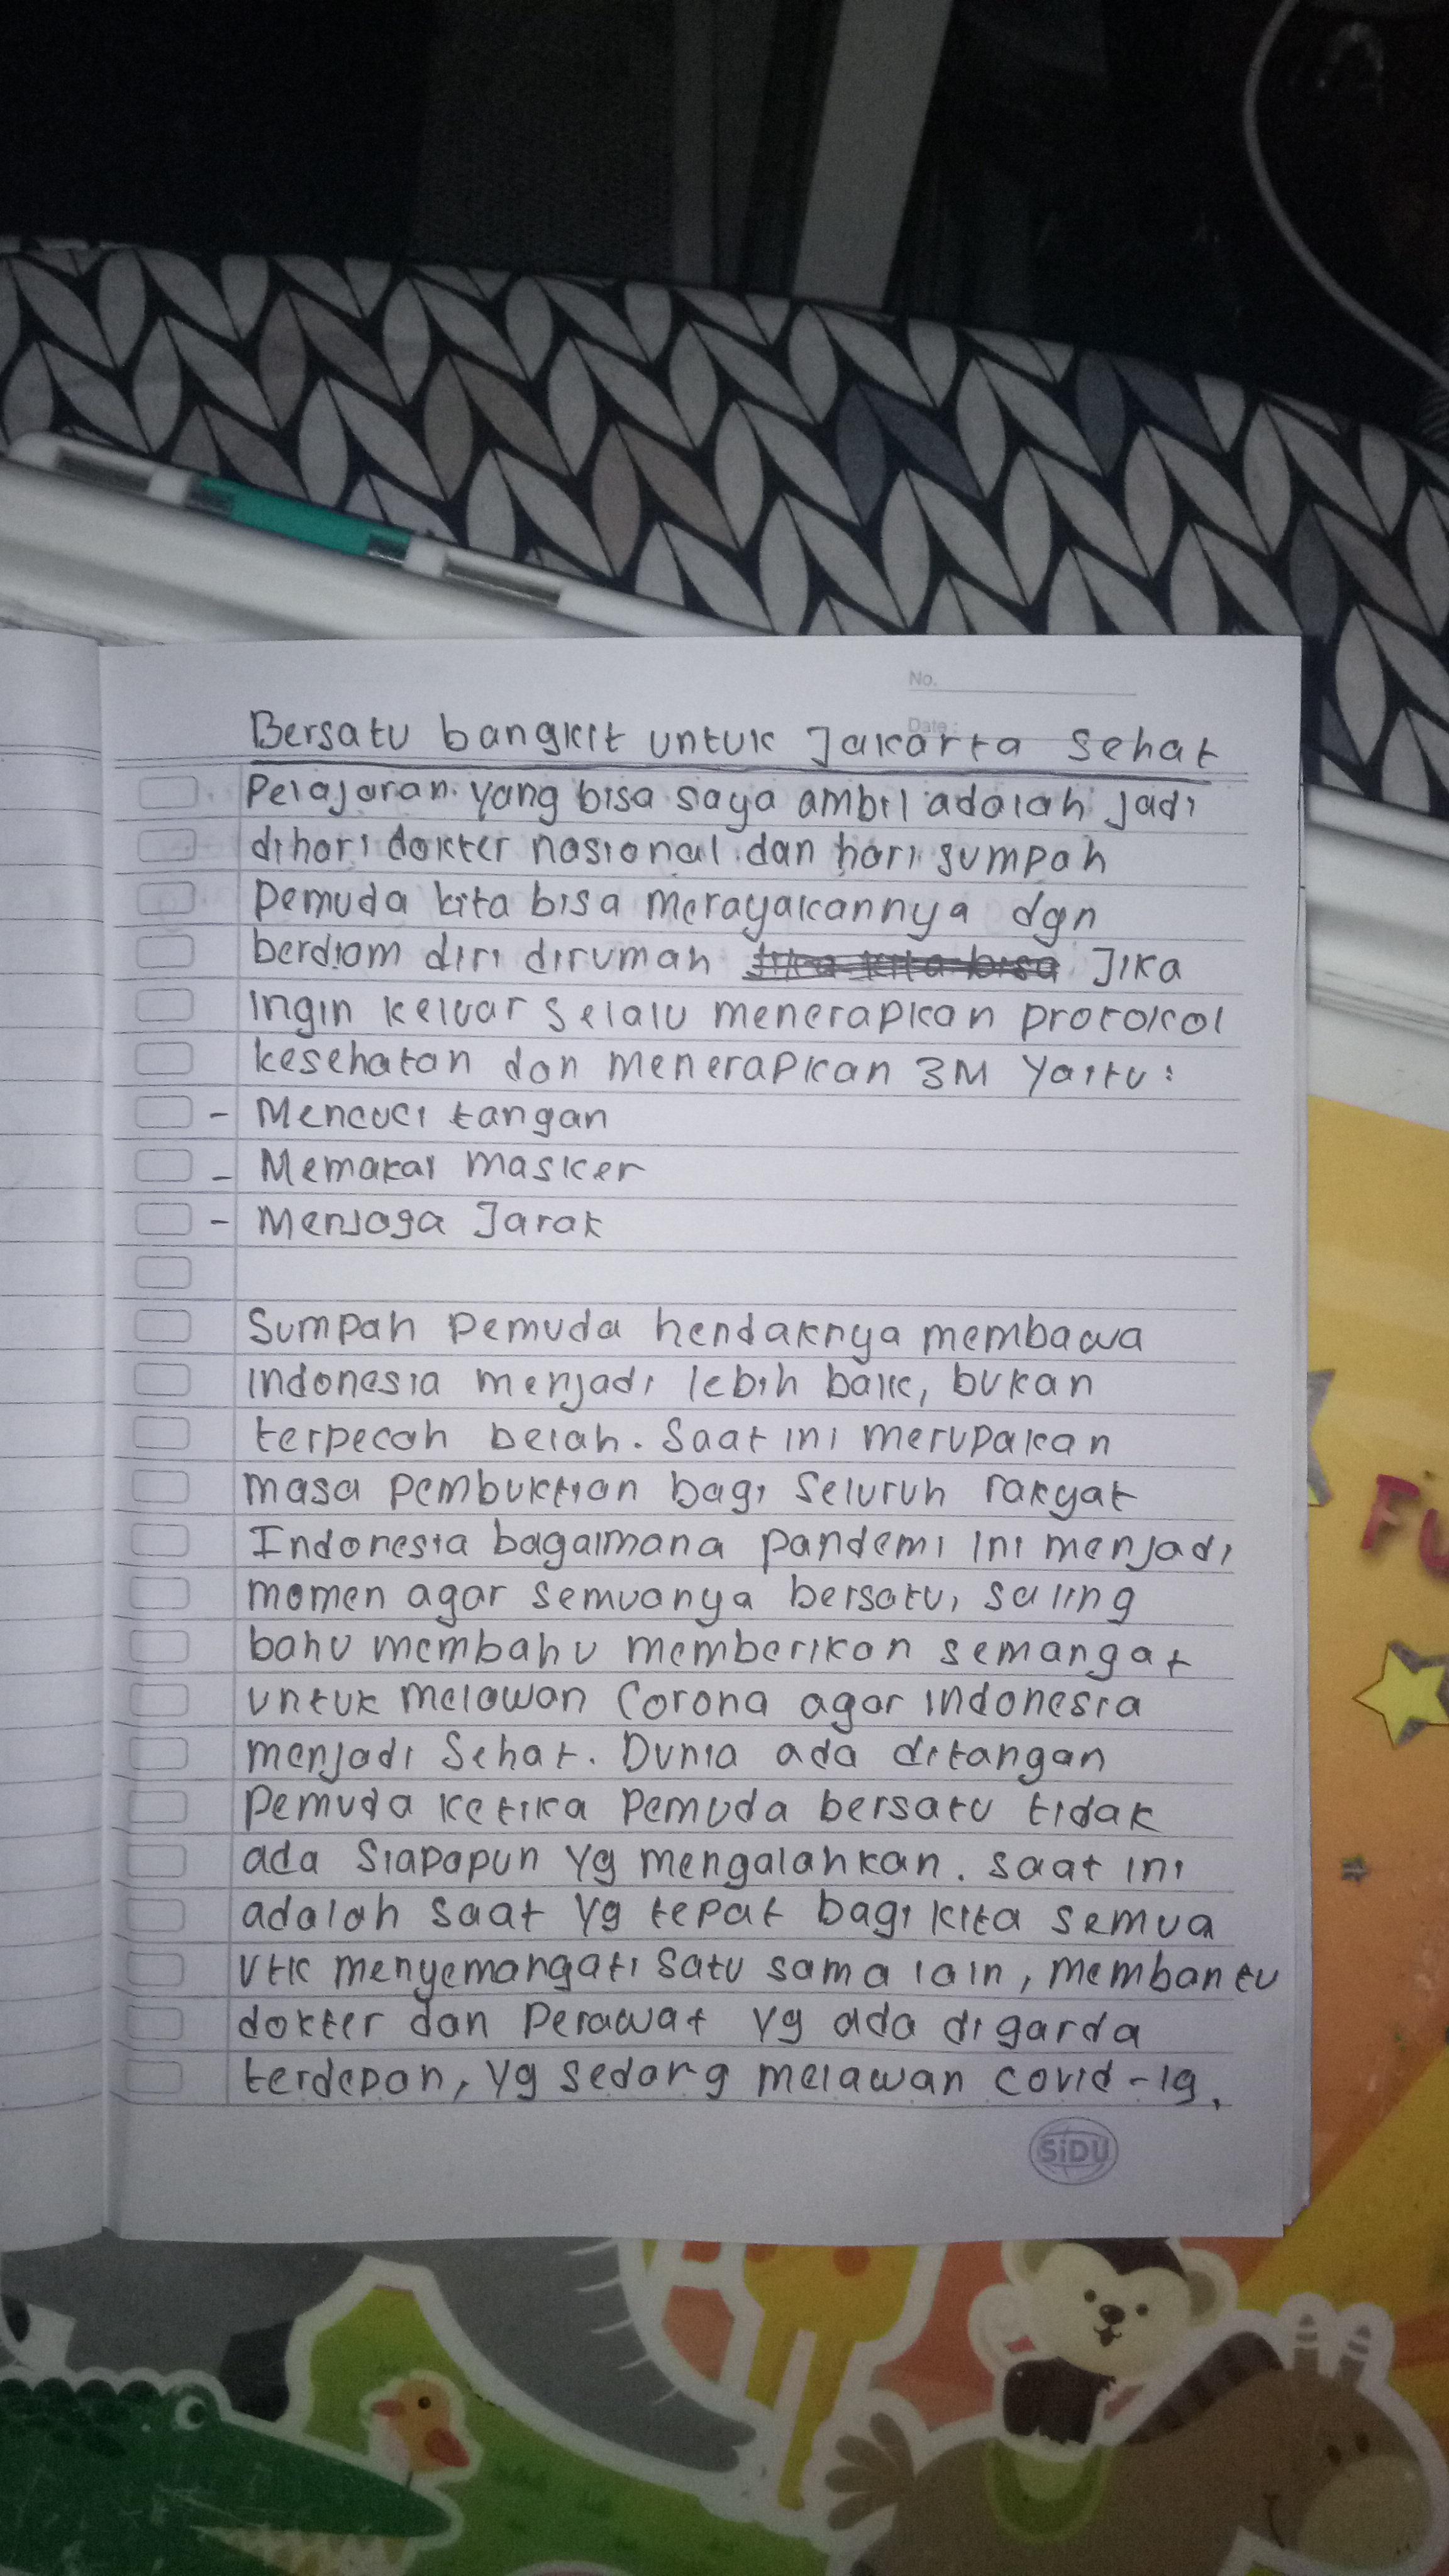 No.
Date:
Bersatu bangkit untuk Jakarta Sehat
Pelajaran yang bisa saya ambil adalah jadi
dihari dokter nasional dan hari sumpah
Pemuda kita bisa merayakannya dgn
berdiam diri dirumah Jika kita bisa Jika
ingin keluar selalu menerapkan protokol
kesehatan dan menerapkan 3M yaitu:
- Mencuci tangan
- Memakai masker
- Menjaga Jarak
Sumpah Pemuda hendaknya membawa
indonesia menjadi lebih baik, bukan
terpecah belah. Saat ini merupakan
masa pembuktian bagi seluruh rakyat
Indonesia bagaimana pandemi ini menjadi
momen agar semuanya bersatu, saling
bahu membahu memberikan semangat
untuk melawan Corona agar indonesia
menjadi Sehat. Dunia ada ditangan
Pemuda ketika Pemuda bersatu tidak
ada siapapun yg mengalahkan. saat ini
adalah saat yg tepat bagi kita semua
utk menyemangati satu sama lain, membantu
dokter dan Perawat yg ada digarda
terdepan, yg sedang melawan covid-19.
SiDU
FU